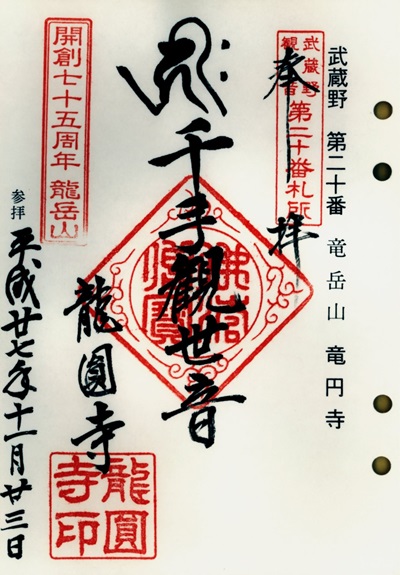 武蔵野 第二十番 竜岳山 竜円寺
武蔵野
観音
第二十番札所
奉拝
千手観世音
佛法僧寶
龍圓寺
龍圓
寺印
開創七十五周年 龍岳山
参拝
平成廿七年十一月廿三日